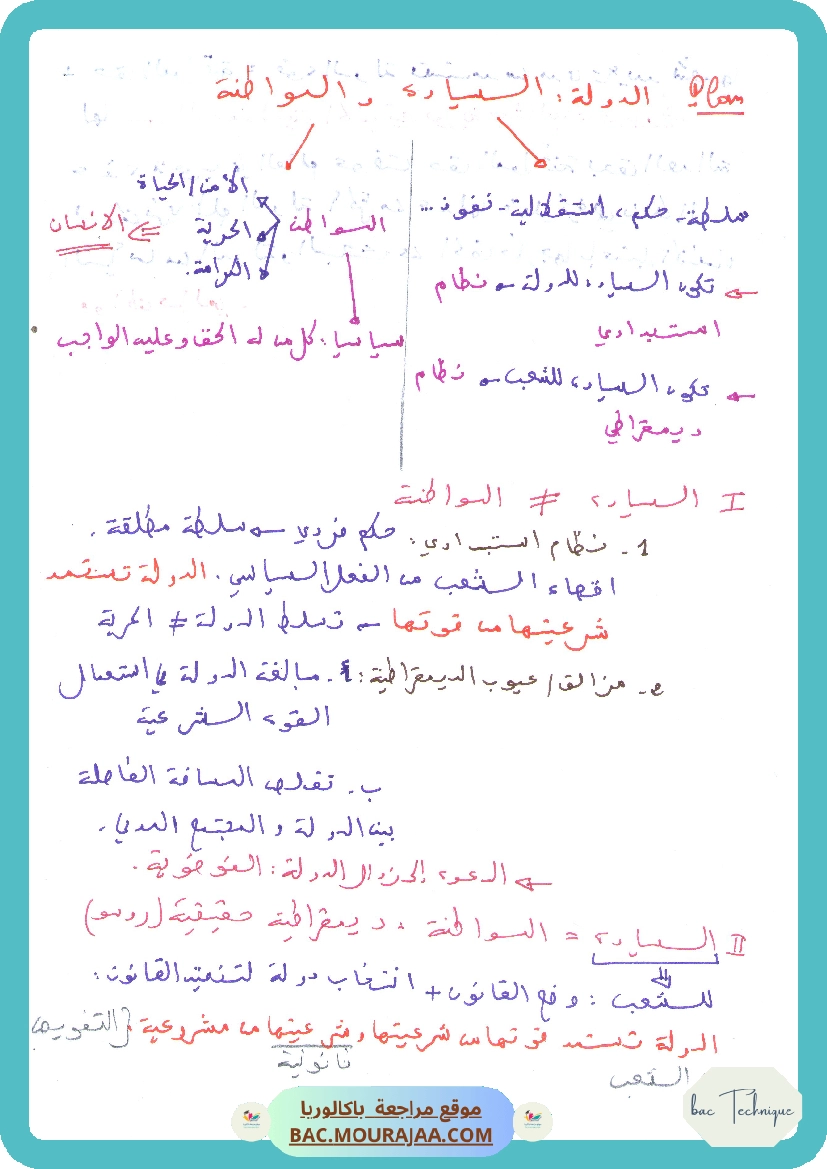 Plan الدولة: السيادة والمواطنة
سلطة - حكم، استقلالية - نفوذ...
← تكون السيادة للدولة → نظام
استبدادي
← تكون السيادة للشعب → نظام
ديمقراطي
الأمن / الحياة
المواطنة الحرية ⇐ الإنسان
الكرامة.
سياسيا: كل من له الحق وعليه الواجب
I السيادة ≠ المواطنة
1 - نظام استبدادي: حكم فردي → سلطة مطلقة.
اقصاء الشعب من الفعل السياسي. الدولة تستمد
شرعيتها من قوتها → تسلط الدولة ≠ الحرية
2 - مزالق / عيوب الديمقراطية: أ - مبالغة الدولة في استعمال
القوة الشرعية
ب - تقلص المسافة الفاصلة
بين الدولة والمجتمع المدني.
← الدعوة إلى زوال الدولة: الفوضوية.
II السيادة = المواطنة: ديمقراطية حقيقية (روسو)
للشعب: وضع القانون + انتخاب دولة لتنفيذ القانون:
الدولة تستمد قوتها من شرعيتها وشرعيتها من مشروعية {التفويض
قانونية
الشعب
bac Technique
موقع مراجعة باكالوريا
BAC.MOURAJAA.COM